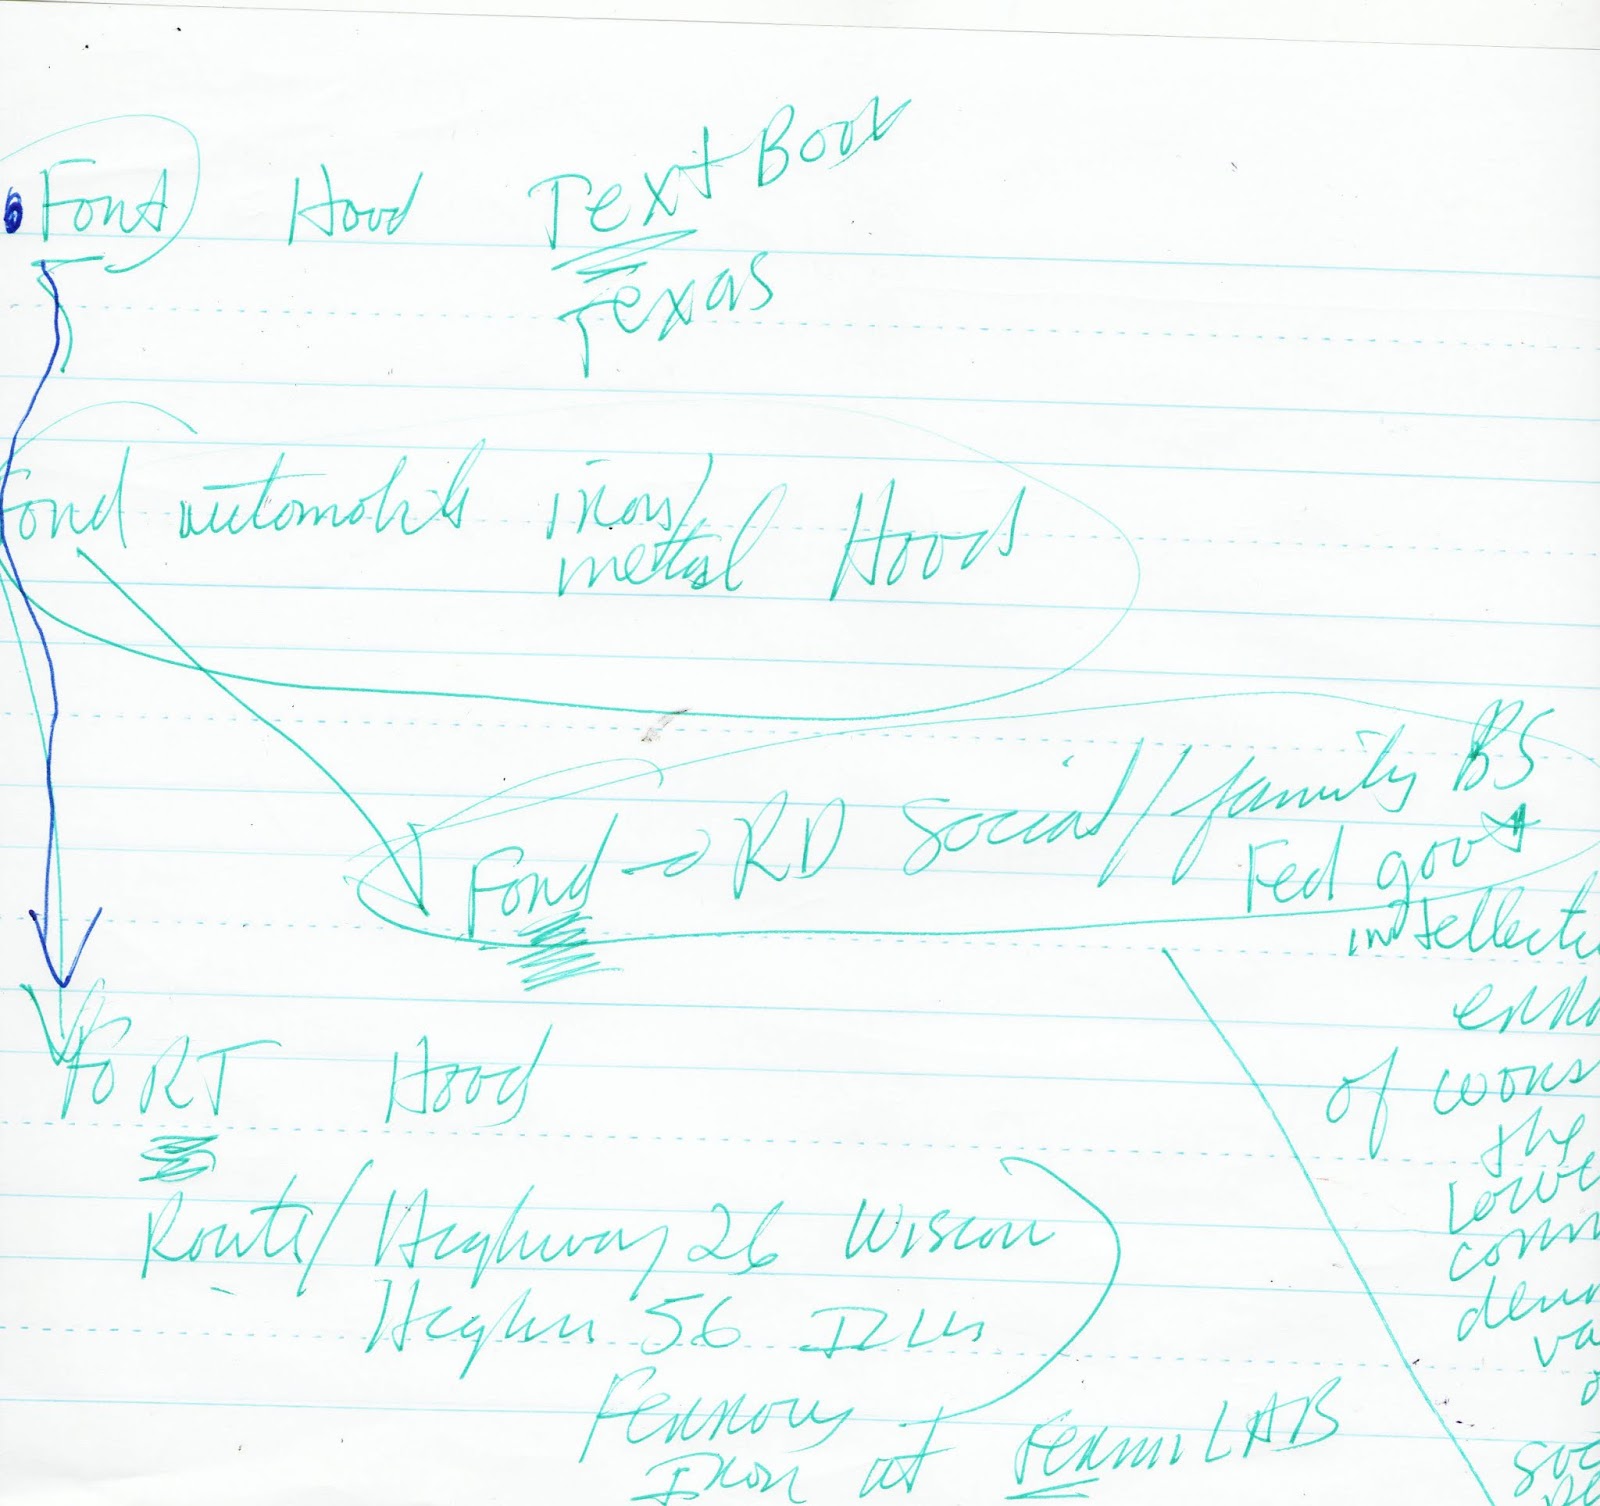 Font Hood Text Book
Texas
Ford automobile iron/
metal Hoods
Ford → RD Social/family BS
Fed gov't
intellectu
erro
of wors
the
Lowe
comm
den
va
FORT Hood
Route/Highway 26 Wiscon
Highw 56 Ills
Ferrous
Iron at FermiLAB
soc